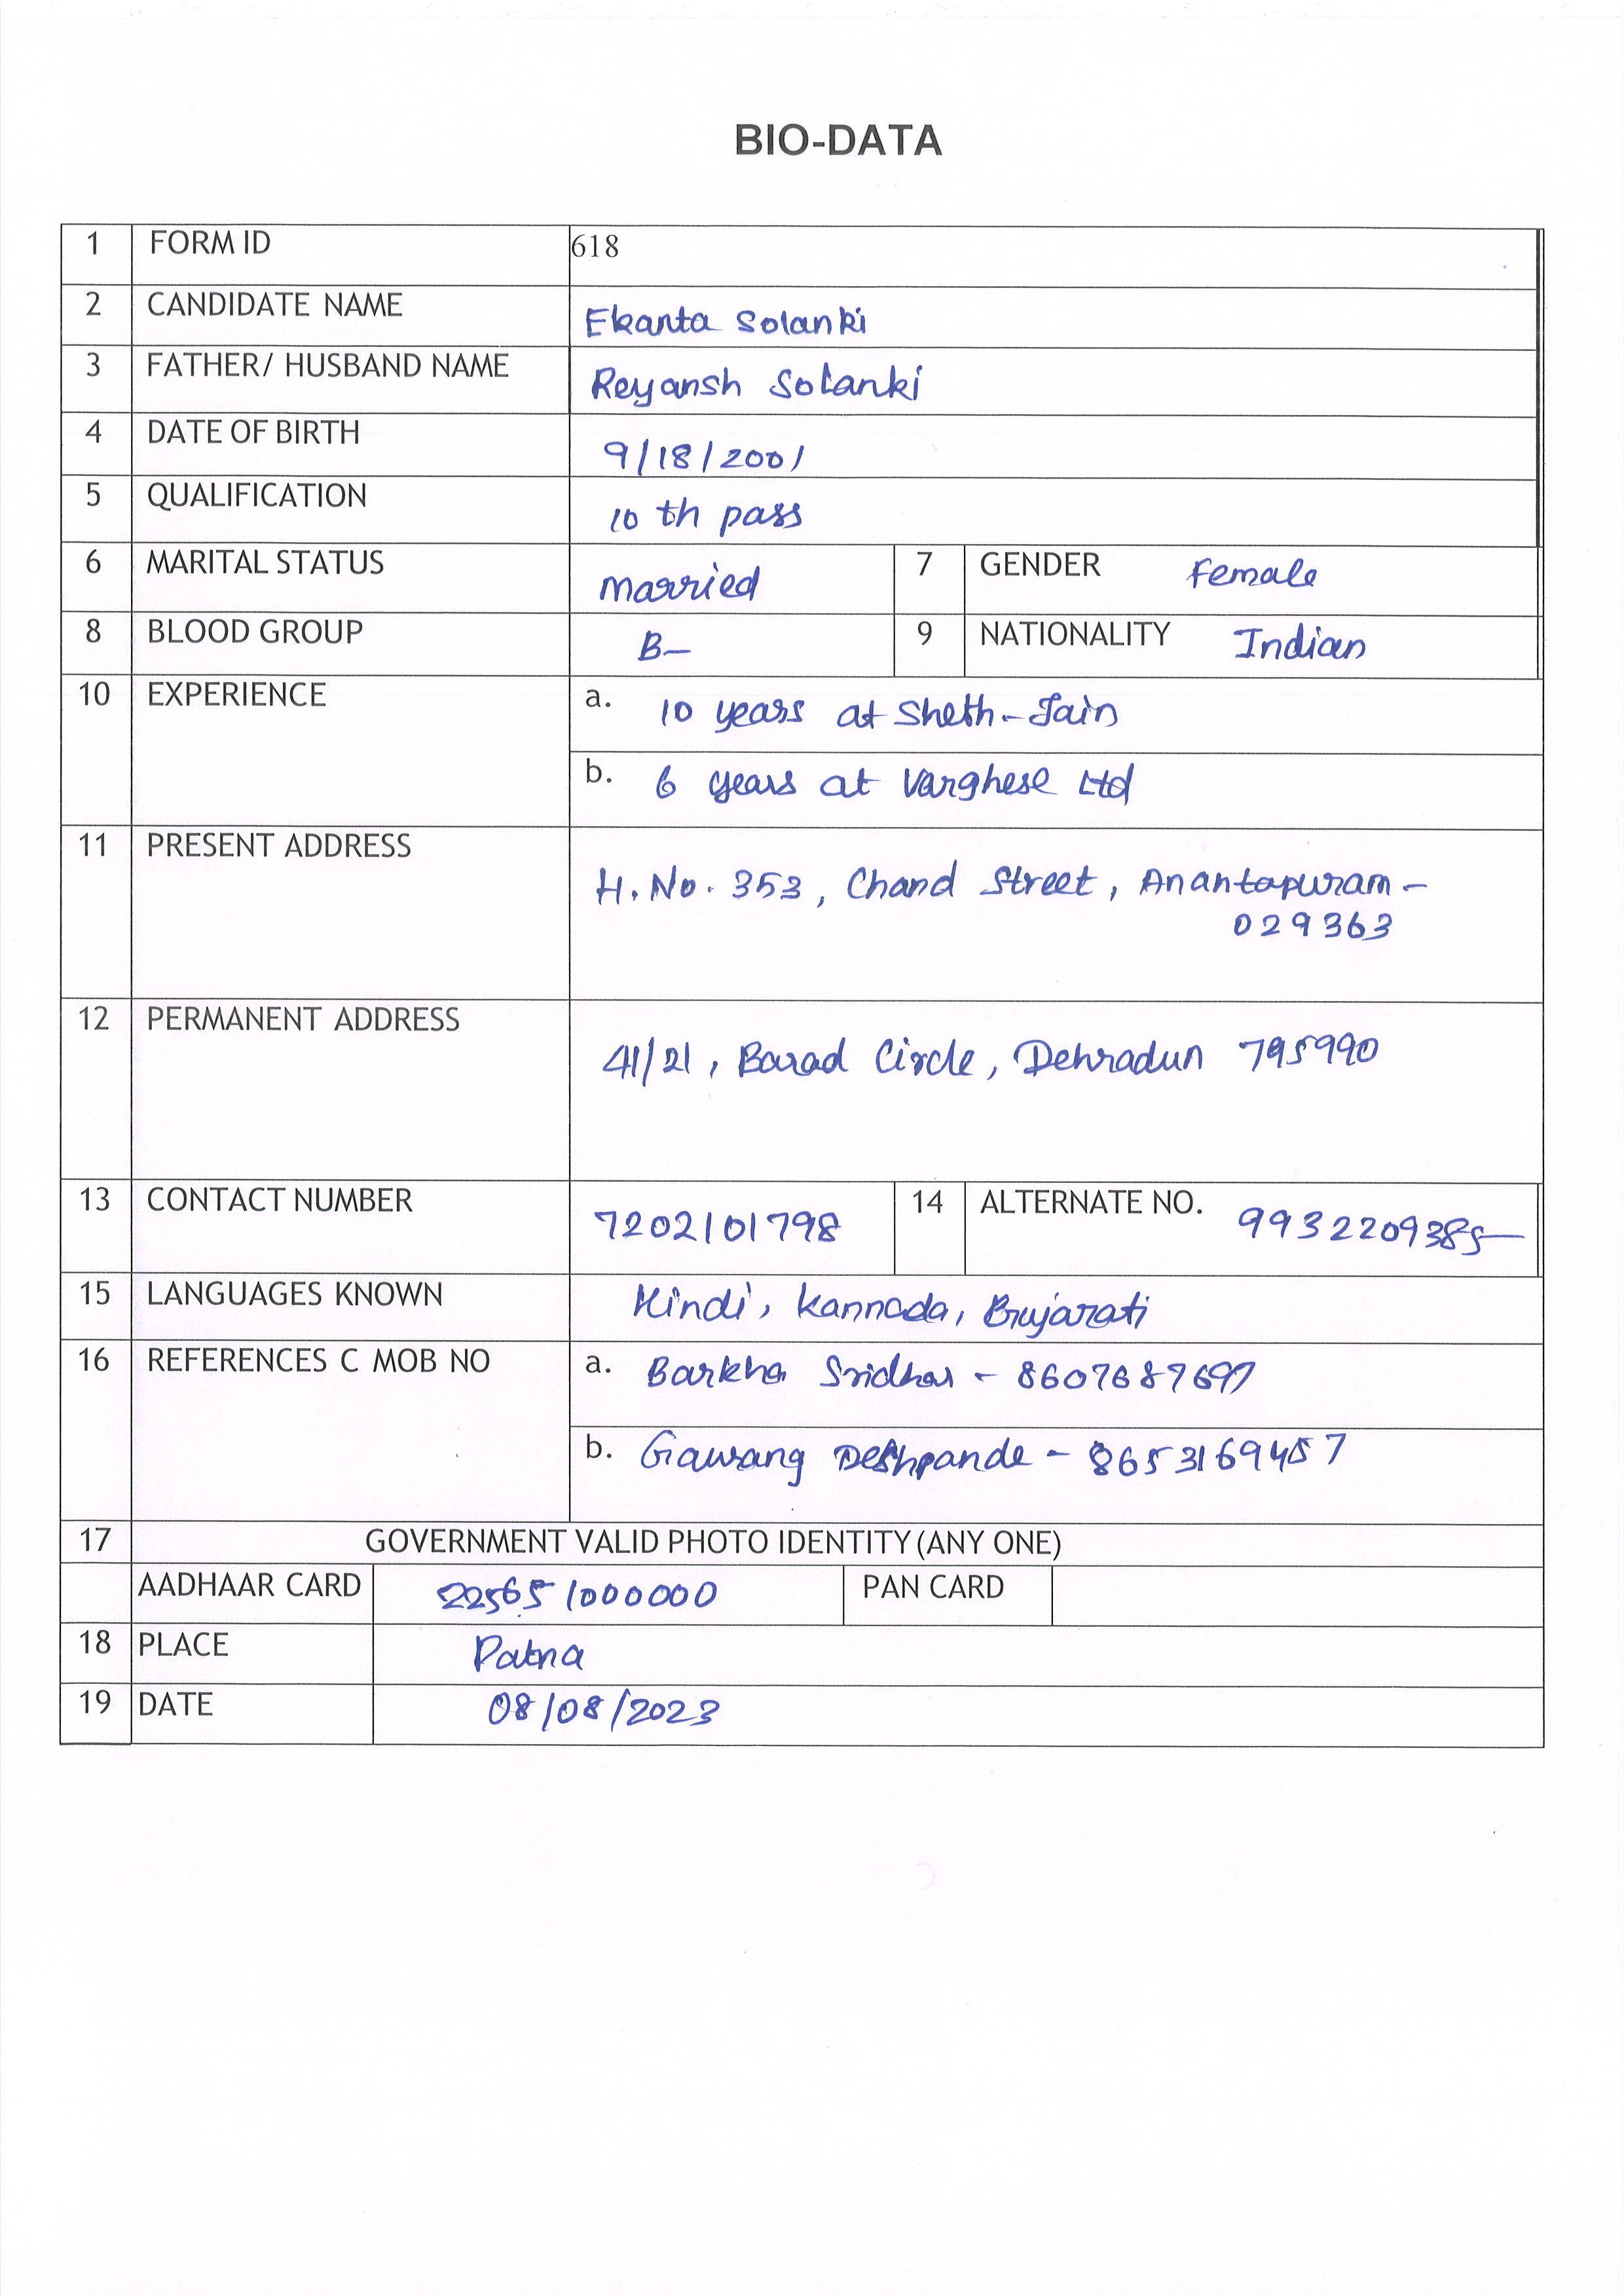 BIO-DATA
1 FORM ID 618
2 CANDIDATE NAME Ekanta Solanki
3 FATHER/ HUSBAND NAME Reyansh Solanki
4 DATE OF BIRTH 9/18/2001
5 QUALIFICATION 10 th pass
6 MARITAL STATUS Married 7 GENDER Female
8 BLOOD GROUP B- 9 NATIONALITY Indian
10 EXPERIENCE a. 10 years at Sheth-Jain
b. 6 years at Varghese Ltd
11 PRESENT ADDRESS
H.No. 353, Chand Street, Anantapuram -
029363
12 PERMANENT ADDRESS
41/21, Barad Circle, Dehradun 795990
13 CONTACT NUMBER 7202101798 14 ALTERNATE NO. 9932209385
15 LANGUAGES KNOWN Hindi, Kannada, Gujarati
16 REFERENCES C MOB NO a. Barkha Sridhar - 8607687697
b. Gaurang Deshpande - 8653169457
17 GOVERNMENT VALID PHOTO IDENTITY (ANY ONE)
AADHAAR CARD 225651000000 PAN CARD
18 PLACE Patna
19 DATE 08/08/2023